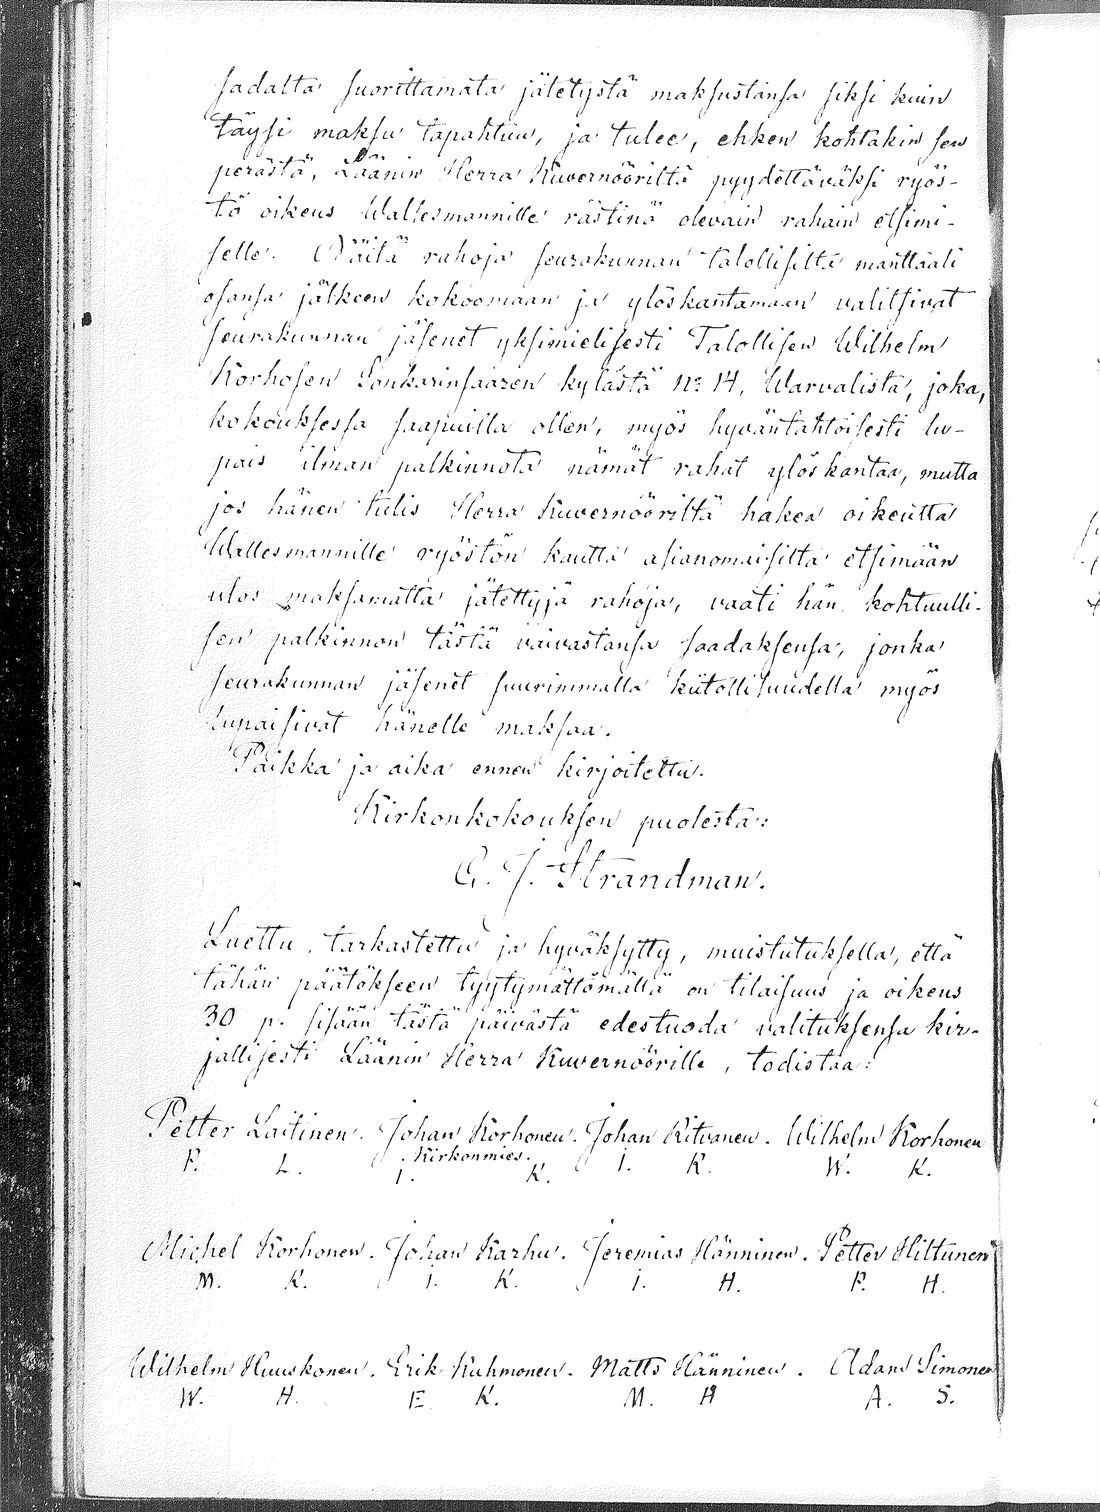 sadalta suorittamata jätetystä maksustansa siksi kuin
täysi maksu tapahtuu, ja tulee, ehken kohtakin sen
perästä, Läänin Herra Kuvernööriltä pyydettäväksi ryös-
tö oikeus Wallesmannille rästinä olevain rahain etsimi-
selle. Näitä rahoja seurakunnan talollisilta manttaali
osansa jälkeen kokoomaan ja ylöskantamaan valitsivat
seurakunnan jäsenet yksimielisesti Talollisen Wilhelm
Korhosen Sonkarinsaaren kylästä No 14, Warvalista, joka,
kokouksessa saapuilla ollen, myös hyväntahtoisesti lu-
pais ilman palkinnota nämät rahat ylöskantaa, mutta
jos hänen tulis Herra Kuvernööriltä hakea oikeutta
Wallesmannille ryöstön kautta asianomaisilta etsimään
ulos maksamatta jätettyjä rahoja, vaati hän kohtuulli-
sen palkinnon tästä vaivastansa saadaksensa, jonka
seurakunnan jäsenet suurimmalla kiitollisuudella myös
lupaisivat hänelle maksaa.
Paikka ja aika ennen kirjoitettu.
Kirkonkokouksen puolesta:
C. J. Strandman.
Luettu, tarkastettu ja hyväksytty, muistutuksella, että
tähän päätökseen tyytymättömällä on tilaisuus ja oikeus
30 p. sisään tästä päivästä edestuoda valituksensa kir-
jallisesti Läänin Herra Kuvernöörille, todistaa:
Petter Laitinen. Johan Korhonen. Johan Ritvanen. Wilhelm Korhonen
Kirkonmies.
P. L. I. K. I. R. W. K.
Michel Korhonen. Johan Karhu. Jeremias Hänninen. Petter Hiltunen
M. K. I. K. I. H. P. H.
Wilhelm Huuskonen. Erik Kuhmonen. Matts Hänninen. Adam Simonen
W. H. E K. M. H A. S.